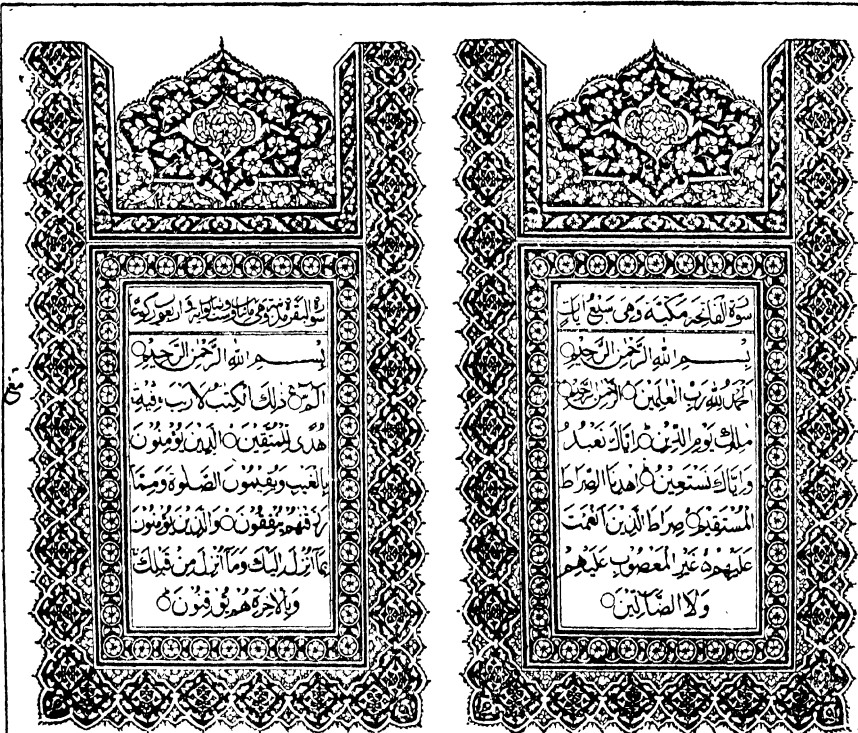 سورة الفاتحة مكية وهي سبع ايات
بسم الله الرحمن الرحيم
الحمد لله رب العلمين الرحمن الرحيم
ملك يوم الدين اياك نعبد
واياك نستعين اهدنا الصراط
المستقيم صراط الذين انعمت
عليهم غير المغضوب عليهم
ولا الضالين
سورة البقرة مدنية وهي مائتان وست اية واربعون ركوعا
بسم الله الرحمن الرحيم
الم ذلك الكتب لا ريب فيه
هدى للمتقين الذين يؤمنون
بالغيب ويقيمون الصلوة ومما
رزقنهم ينفقون والذين يؤمنون
بما انزل اليك وما انزل من قبلك
وبالاخرة هم يوقنون